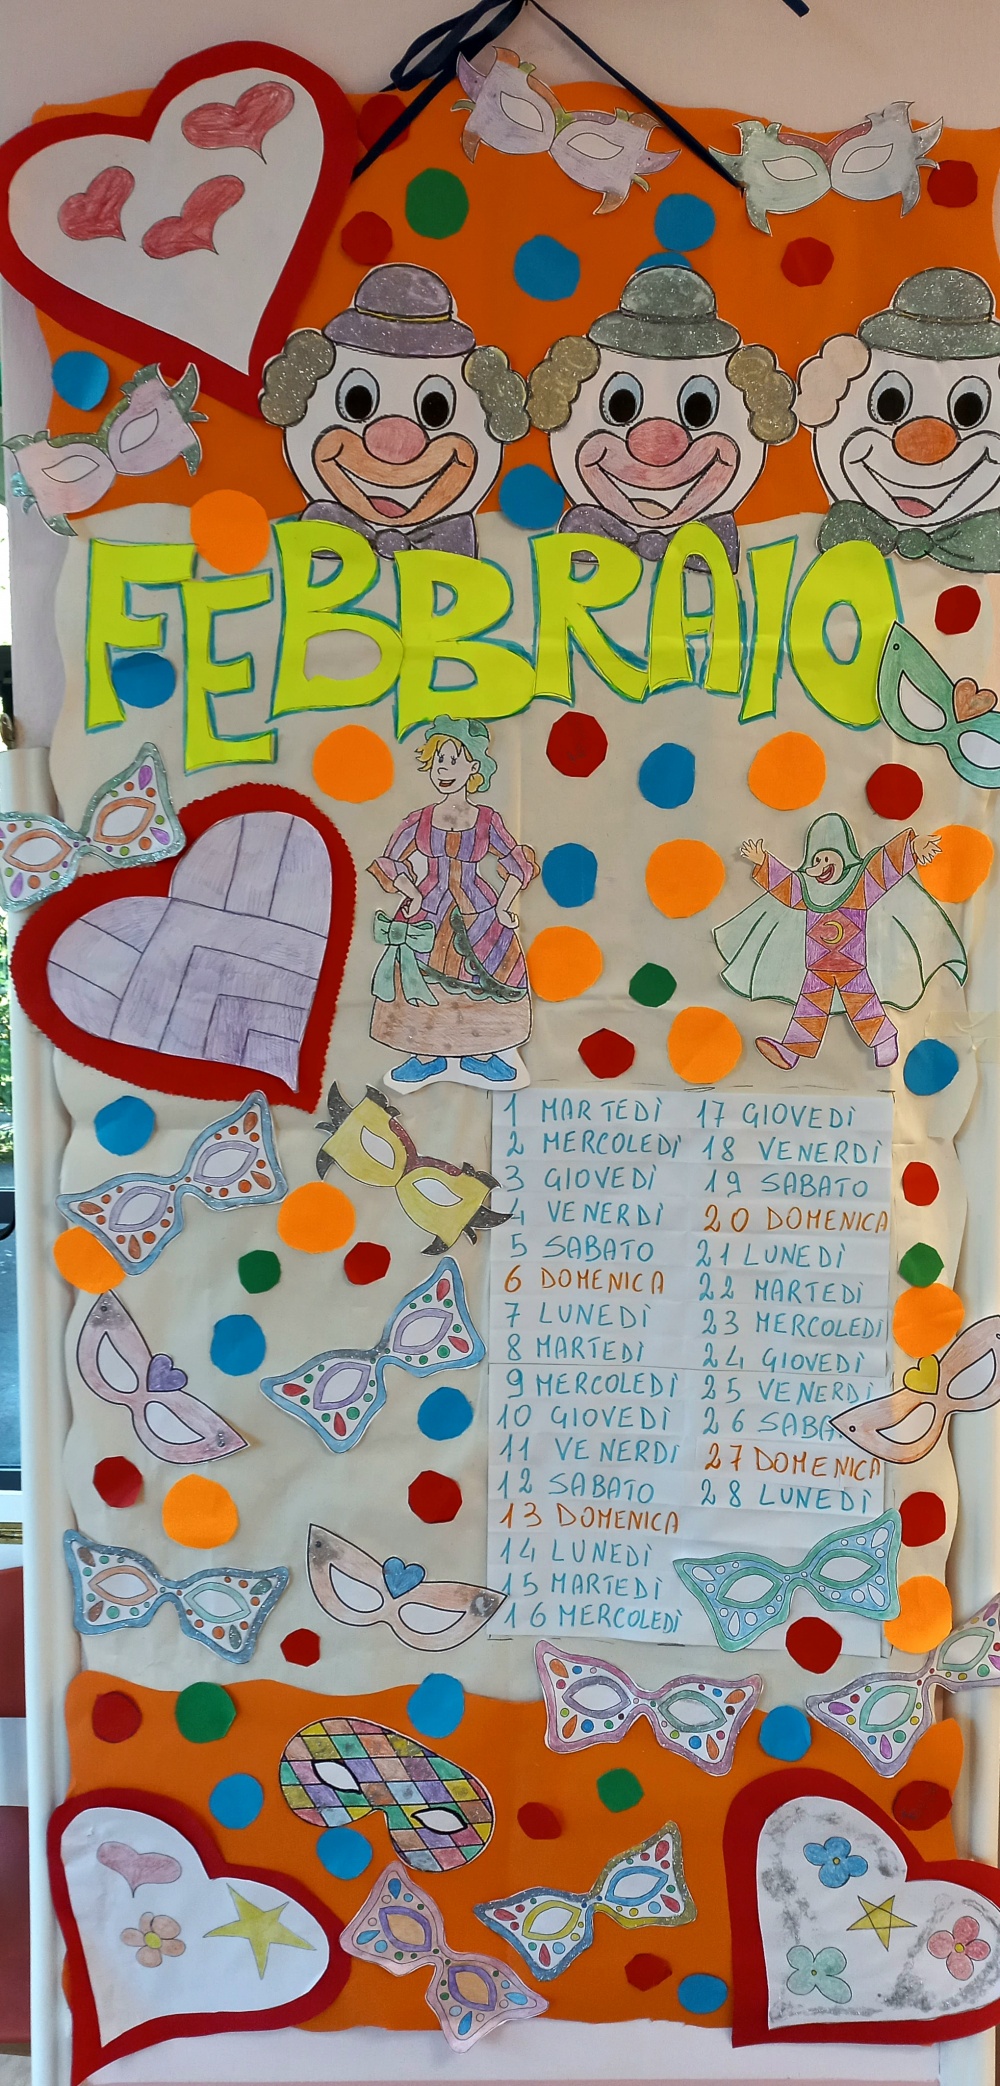 FEBBRAIO
1 MARTEDÌ
2 MERCOLEDÌ
3 GIOVEDÌ
4 VENERDÌ
5 SABATO
6 DOMENICA
7 LUNEDÌ
8 MARTEDÌ
9 MERCOLEDÌ
10 GIOVEDÌ
11 VENERDÌ
12 SABATO
13 DOMENICA
14 LUNEDÌ
15 MARTEDÌ
16 MERCOLEDÌ
17 GIOVEDÌ
18 VENERDÌ
19 SABATO
20 DOMENICA
21 LUNEDÌ
22 MARTEDÌ
23 MERCOLEDÌ
24 GIOVEDÌ
25 VENERDÌ
26 SABA
27 DOMENICA
28 LUNEDÌ